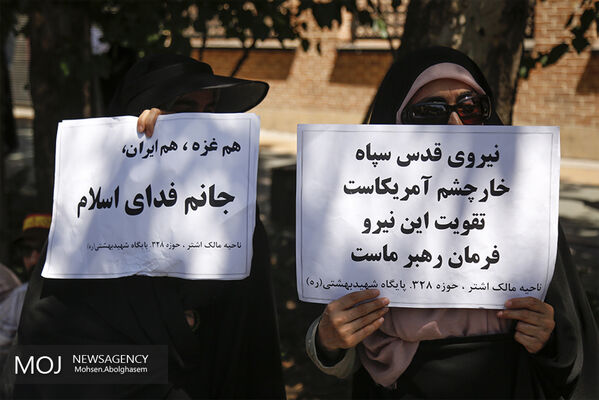 هم غزه ، هم ایران،
جانم فدای اسلام
ناحیه مالک اشتر ، حوزه ۳۲۸. پایگاه شهیدبهشتی(ره)
نیروی قدس سپاه
خارچشم آمریکاست
تقویت این نیرو
فرمان رهبر ماست
ناحیه مالک اشتر ، حوزه ۳۲۸. پایگاه شهیدبهشتی(ره)
MOJ NEWSAGENCY
Mohsen.Abolghasem